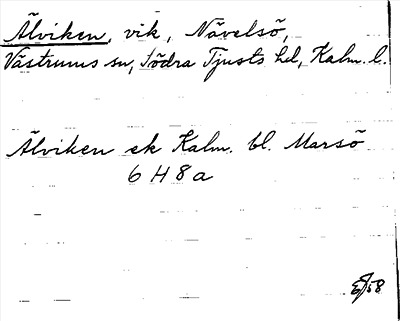 Älviken, vik, Nävelsö,
Västrums sn, Södra Tjusts hd, Kalm. l.
Älviken ek Kalm. bl. Marsö
6 H 8 a